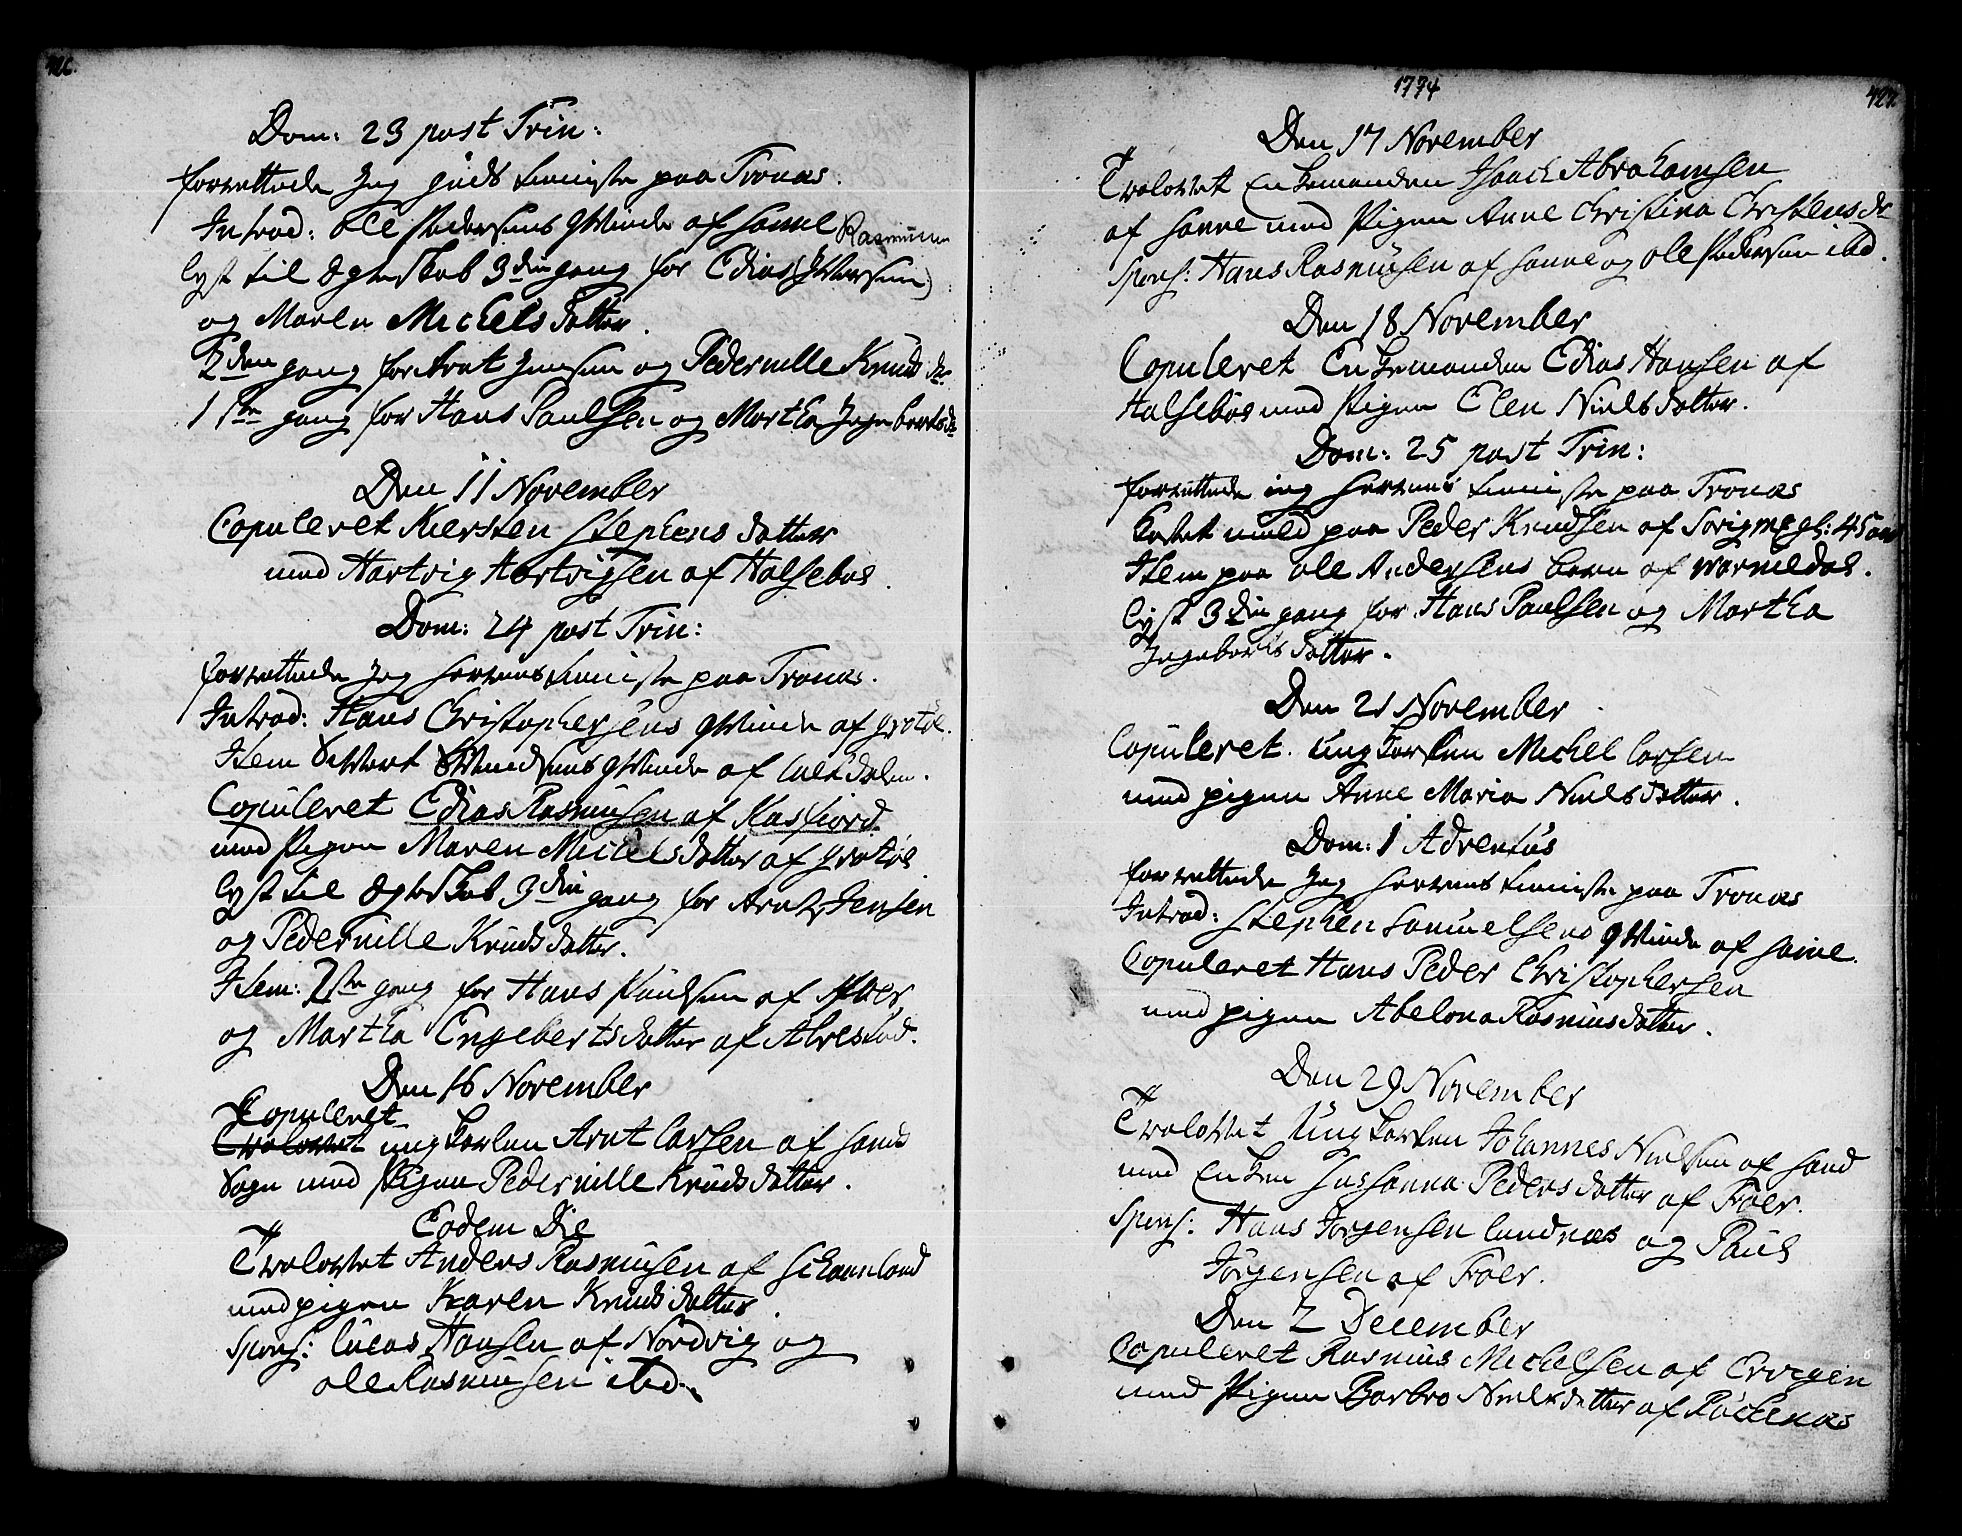 426.
Dom: 23 post Trin:
forrettede Jeg guds tieniste paa Tronæs.
Introd: Ole Pedersens Qvinde af Sanne
lyst til Ægteskab 3die gang for Edias (Ifversen) Rasmusen
og Maren Michelsdatter.
2den gang for Arnt Jensen og Pedernille Knudsdr
1ste gang for Hans Paulsen og Martha Ingebertsdr
Den 11 November
Copuleret Kiersten Stephensdatter
med Hartvig Hartvigsen af Halsebøe.
Dom: 24 post Trin:
forrettede Jeg Herrens tieniste paa Tronæs.
Introd: Hans Christophersens Qvinde af Grøtøe.
Item Sivert Svendsens Qvinde af dalen.
Copuleret Edias Rasmusen af Kasfiord
med Pigen Maren Michelsdatter af Grøtøe
lyst til Ægteskab 3die gang for Arnt Jensen
og Pedernille Knudsdatter.
Item: 2den gang for Hans Paulsen af
og Martha Engebertsdatter af Alvestad.
Den 16 November
Copuleret
Trolovet ungkarlen Arnt Larsen af Sands
Sogn med Pigen Pedernille Knudsdatter.
Eodem Die
Trolovet Anders Rasmusen af Schaanland
med pigen Karen Knudsdatter.
Spons: Lucas Hansen af Nordvig og
Ole Rasmusen ibd.
1774
427.
Den 17 November
Trolovet Enkemanden Isach Abrahamsen
af Sanne med Pigen Anne Christina Christensdr
Spons: Hans Rasmusen af Sanne og Ole Pedersen ibd.
Den 18 November
Copuleret Enkemanden Edias Hansen af
Halsebøe med Pigen Elen Nielsdatter.
Dom: 25 post Trin:
forrettede ieg Herrens tieniste paa Tronæs
Kastet muld paa Peder Knudsen af Sørigme gl: 45 aar
Item paa Ole Andersens barn af
lyst 3die gang for Hans Paulsen og Martha
Ingebertsdatter.
Den 21 November
Copuleret. ungkarlen Michel Larsen
med pigen Anne Maria Nielsdatter.
Dom: 1 Adventus
forrettede Jeg Herrens tieniste paa Tronæs
Introd: Stephen Samuelsens Qvinde af Sanne.
Copuleret Hans Peder Christophersen
med pigen Abelona Rasmusdatter.
Den 29 November
Trolovet Ungkarlen Johannes Nielsen af Sand
med Enken Susanna Pedersdatter af Froer.
Spons: Hans Jørgensen Lundnæs og Paul
Jørgensen af Froer.
Den 2 December
Copuleret Rasmus Michelsen af Ervigen
med Pigen Barbro Nielsdatter af Røchenæs